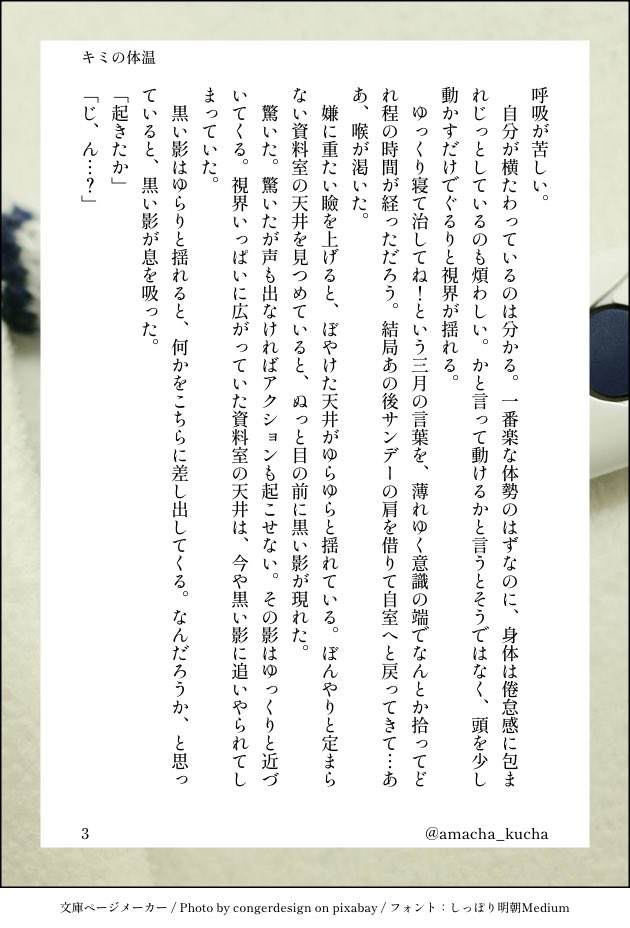 キミの体温
呼吸が苦しい。
　自分が横たわっているのは分かる。一番楽な体勢のはずなのに、身体は倦怠感に包ま
れじっとしているのも煩わしい。かと言って動けるかと言うとそうではなく、頭を少し
動かすだけでぐるりと視界が揺れる。
　ゆっくり寝て治してね！という三月の言葉を、薄れゆく意識の端でなんとか拾ってど
れ程の時間が経っただろう。結局あの後サンデーの肩を借りて自室へと戻ってきて…あ
あ、喉が渇いた。
　嫌に重たい瞼を上げると、ぼやけた天井がゆらゆらと揺れている。ぼんやりと定まら
ない資料室の天井を見つめていると、ぬっと目の前に黒い影が現れた。
　驚いた。驚いたが声も出なければアクションも起こせない。その影はゆっくりと近づ
いてくる。視界いっぱいに広がっていた資料室の天井は、今や黒い影に追いやられてし
まっていた。
　黒い影はゆらりと揺れると、何かをこちらに差し出してくる。なんだろうか、と思っ
ていると、黒い影が息を吸った。
「起きたか」
「じ、ん…？」
3
@amacha_kucha
文庫ページメーカー / Photo by congerdesign on pixabay / フォント：しっぽり明朝Medium